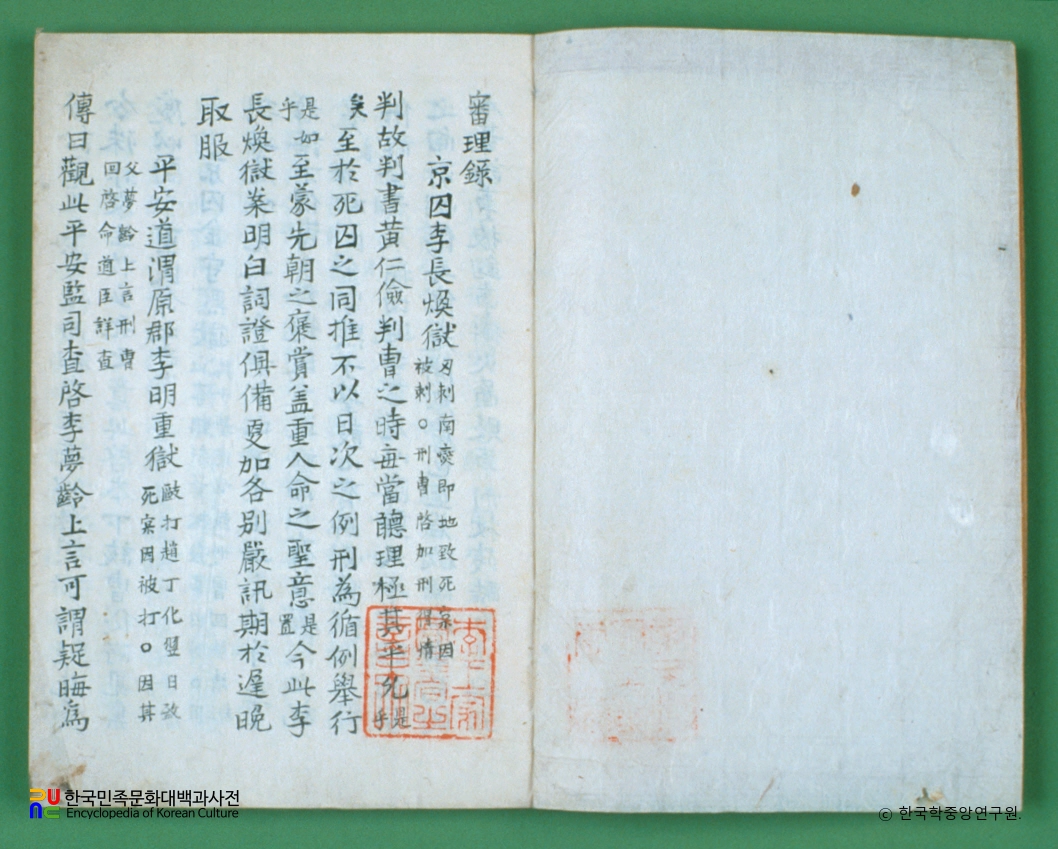 審理錄
京囚李長煥獄 刃刺南 即地致死 案因
被刺○刑曹啓加刑得情
判故判書黃仁儉判曹之時每當聽理極其平允 是乎
矣至於死囚之同推不以日次之例刑為循例舉行
是如
乎至蒙先朝之褒賞盖重人命之聖意 是置 今此李
長煥獄案明白詞證俱備更加各別嚴訊期於遲晚
取服
平安道渭原郡李明重獄 毆打趙丁化翌日致
死案因被打○因其
父夢齡上言刑曹
回啓命道臣詳查
傳曰觀此平安監司查啓李夢齡上言可謂疑晦為
한국민족문화대백과사전
Encyclopedia of Korean Culture
© 한국학중앙연구원.